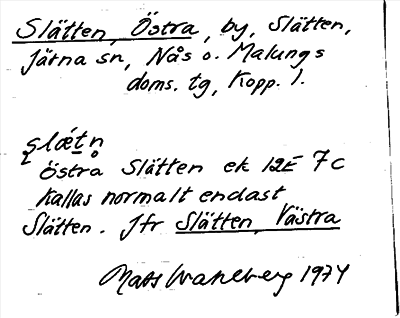 Slätten, Östra, by, Slätten,
Järna sn, Nås o. Malungs
doms. tg, Kopp. l.
slǽtn̥
Östra Slätten ek 12E 7c
kallas normalt endast
Slätten. Jfr Slätten, Västra
Mats Wahlberg 1974